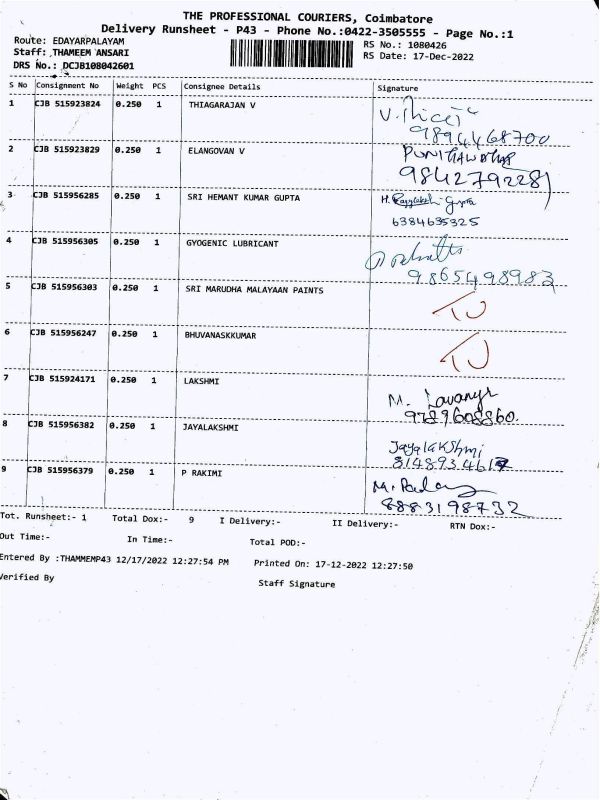 THE PROFESSIONAL COURIERS, Coimbatore
Delivery Runsheet - P43 - Phone No.:0422-3505555 - Page No.:1
Route: EDAYARPALAYAM
RS No.: 1080426
Staff: THAMEEM ANSARI
RS Date: 17-Dec-2022
DRS No.: DCJB108042601
S No Consignment No Weight PCS Consignee Details Signature
1 CJB 515923824 0.250 1 THIAGARAJAN V
9894468700
2 CJB 515923829 0.250 1 ELANGOVAN V
9842792281
3 CJB 515956285 0.250 1 SRI HEMANT KUMAR GUPTA H. Rajylakshi Gupta
6384635325
4 CJB 515956305 0.250 1 GYOGENIC LUBRICANT
9865498983
5 CJB 515956303 0.250 1 SRI MARUDHA MALAYAAN PAINTS TJ
6 CJB 515956247 0.250 1 BHUVANASKKUMAR TJ
7 CJB 515924171 0.250 1 LAKSHMI M. Lavanya
9789608860.
8 CJB 515956382 0.250 1 JAYALAKSHMI Jayalakshmi
8148934617
9 CJB 515956379 0.250 1 P RAKIMI
8883198732
Tot. Runsheet:- 1 Total Dox:- 9 I Delivery:- II Delivery:- RTN Dox:-
Out Time:- In Time:- Total POD:-
Entered By :THAMMEMP43 12/17/2022 12:27:54 PM Printed On: 17-12-2022 12:27:50
Verified By Staff Signature